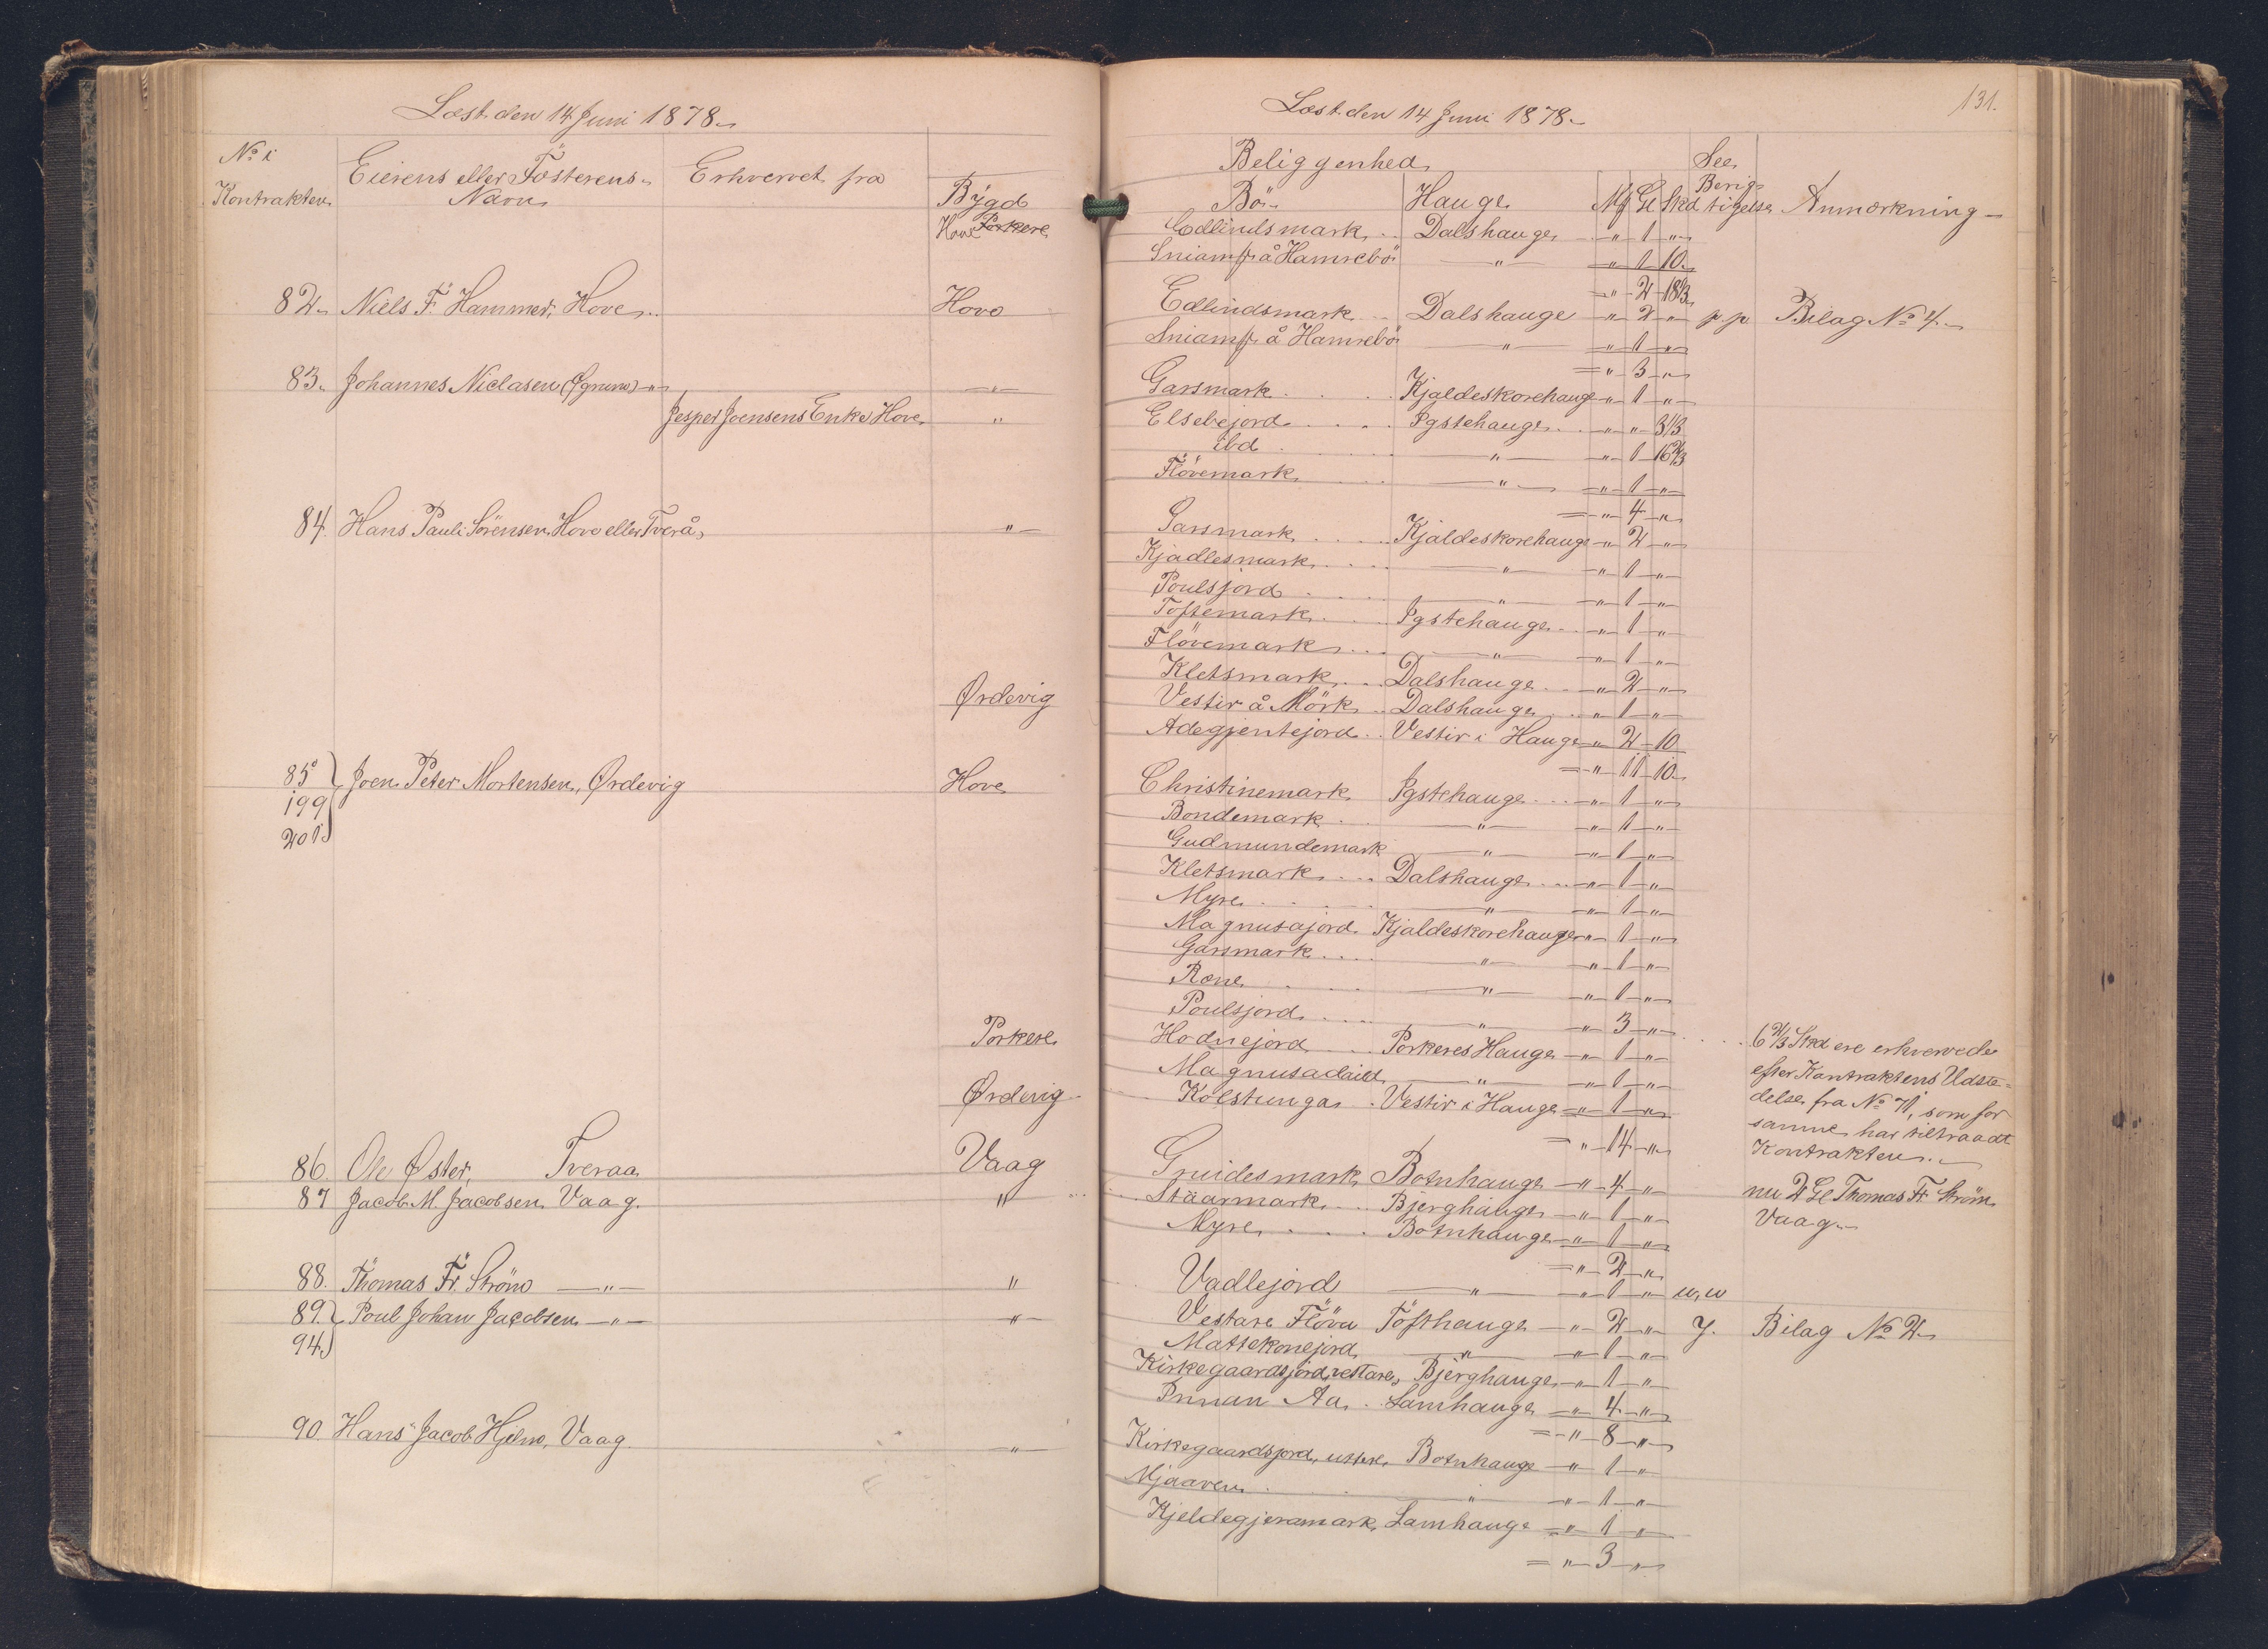 Læst den 14 Juni 1878.
No i Kontrakten
Eierens eller Fæsterens Navn
Erhvervet fra
Bygd
Hove Porkere
82. Niels F. Hammer, Hove Hove
83. Johannes Niclasen (Ignund) " "
Jesper Joensens Enke Hove "
84. Hans Pauli Sörensen Hove eller Tverå "
Ørdevig
85 Joen Peter Mortensen, Ørdevig Hove
199
201
Porkere
Ørdevig
86. Ole Øster, Tveraa Vaag
87 Jacob M. Jacobsen, Vaag. "
88. Thomas Fr. Ström " "
89. Poul Johan Jacobsen " "
94.
90. Hans Jacob Hjelm, Vaag. "
131.
Læst den 14 Juni 1878.
Beliggenhed
Bö Hauge Mk Gl Skd See Berigtigelse Anmærkning
Edlindsmark Dalshauge " 1 "
Sniamp å Hamrebö " " 1 10
" 2 18 1/3
Edlindsmark Dalshauge " 2 " p. p. Bilag No 4.
Sniamp å Hamrebö " " 1 "
" 3 "
Garsmark Kjaldeskorehauge " 1 "
Elsebejord Igstehauge " " 3 1/3
ibd " " 1 16 2/3
Flövemark " " 1 "
" 4 "
Garsmark Kjaldeskorehauge " 2 "
Kjadlesmark " " 1 "
Poulsjord " " 1 "
Toftemark Igstehauge " 1 "
Flövemark " " 1 "
Kletsmark Dalshauge " 2 "
Vestir å Mörk Dalshauge " 1 "
Adegjentejord Vestir i Hauge " 2 10
" 11 10
Christinemark Igstehauge " 1 "
Bondemark " " 1 "
Gudmundemark " " 1 "
Kletsmark Dalshauge " 1 "
Myre " " 1 "
Magnusajord Kjaldeskorehauge " 1 "
Garsmark " " 1 "
Rone " " 1 "
Poulsjord " " 3 "
Hodnejord Porkeres Hauge " 1 " 6 2/3 Skd ere erhvervede
Magnusadaild " " 1 " efter Kontraktens Udste=
Kolstunga Vestir i Hauge " 1 " delse fra No 71, som for
" 14 " samme har tiltraadt
Kontrakten.
Gruidesmark Botnhauge " 4 "
Stäarmark Bjerghauge " 1 " nu 2 Gl Thomas Fr. Ström
Myre Botnhauge " 1 " Vaag.
" 2 "
Vadlejord " " 1 " u, u
Vestare Flöva Töfthauge " 2 " 7. Bilag No 2.
Mattekonejord " " 1 "
Kirkegaardsjord, vestare, Bjerghauge " 1 "
Innan Aa Lamhauge " 4 "
" 8 "
Kirkegaardsjord, Botnhauge " 1 "
Mjaaven " " 1 "
Kjeldegjeramark Lamhauge " 1 "
" 3 "